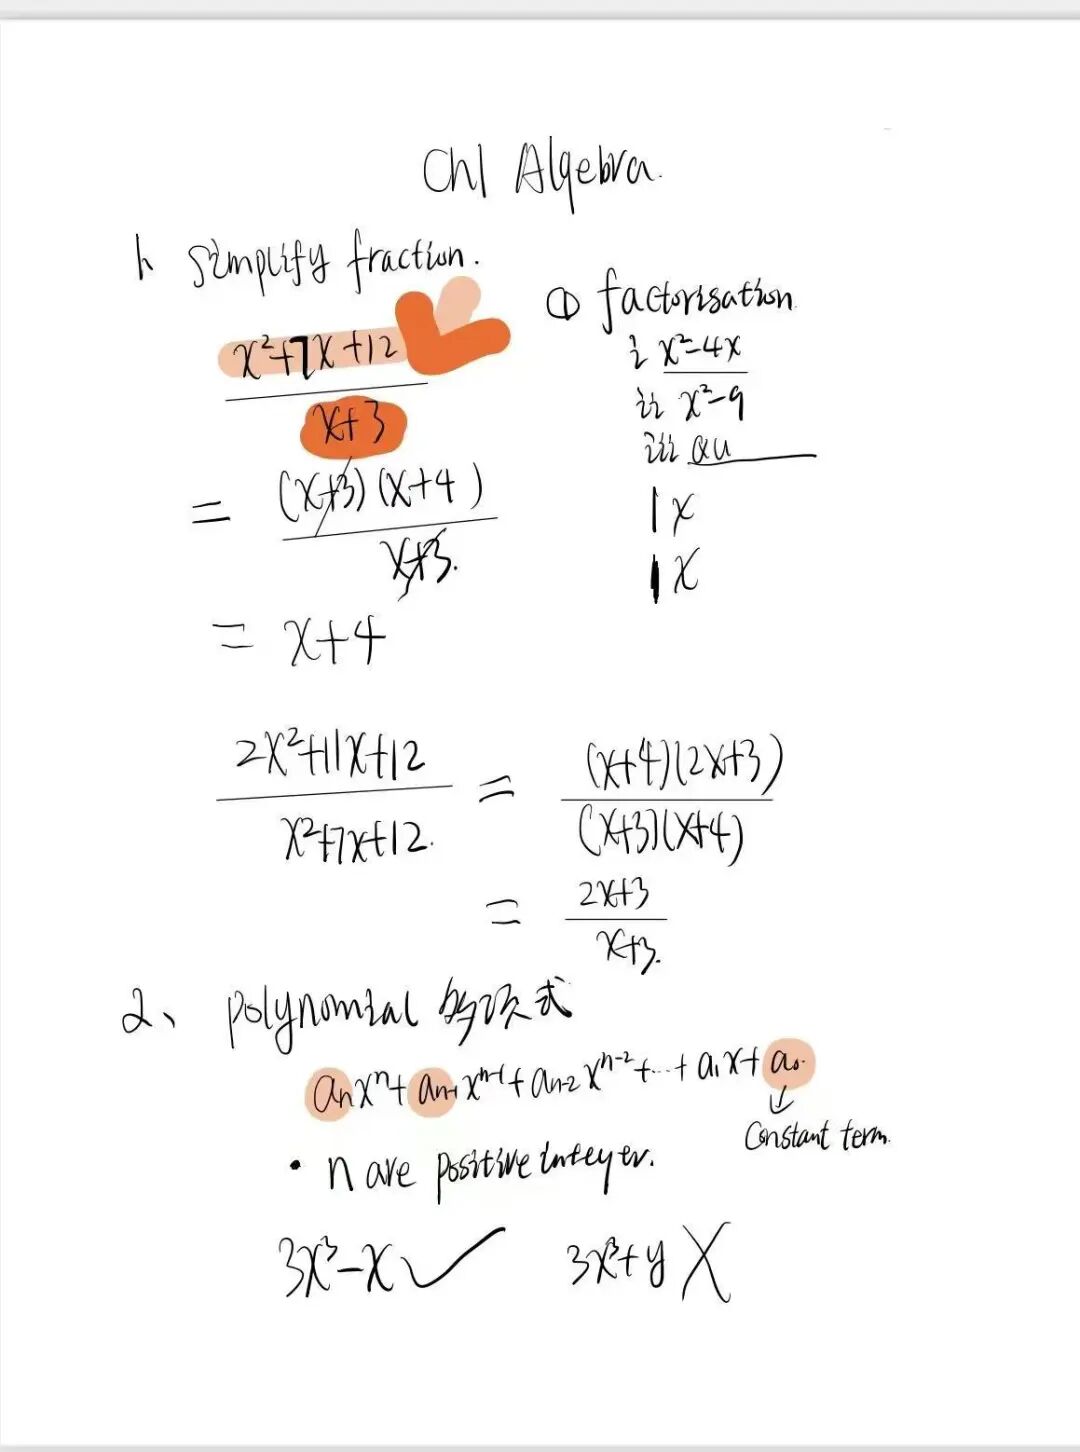 Ch1 Algebra.
1、 simplify fraction.
x²+7x+12
x+3
= (x+3)(x+4)
x+3.
= x+4
① factorisation
i x²-4x
ii x²-9
iii
1 x
1 x
2x²+11x+12 = (x+4)(2x+3)
x²+7x+12. (x+3)(x+4)
= 2x+3
x+3.
2、 polynomial 多项式
aₙxⁿ+aₙ₋₁xⁿ⁻¹+aₙ₋₂xⁿ⁻²+...+a₁x+a₀.
Constant term.
• n are positive integer.
3x³-x ✓ 3x³+y X